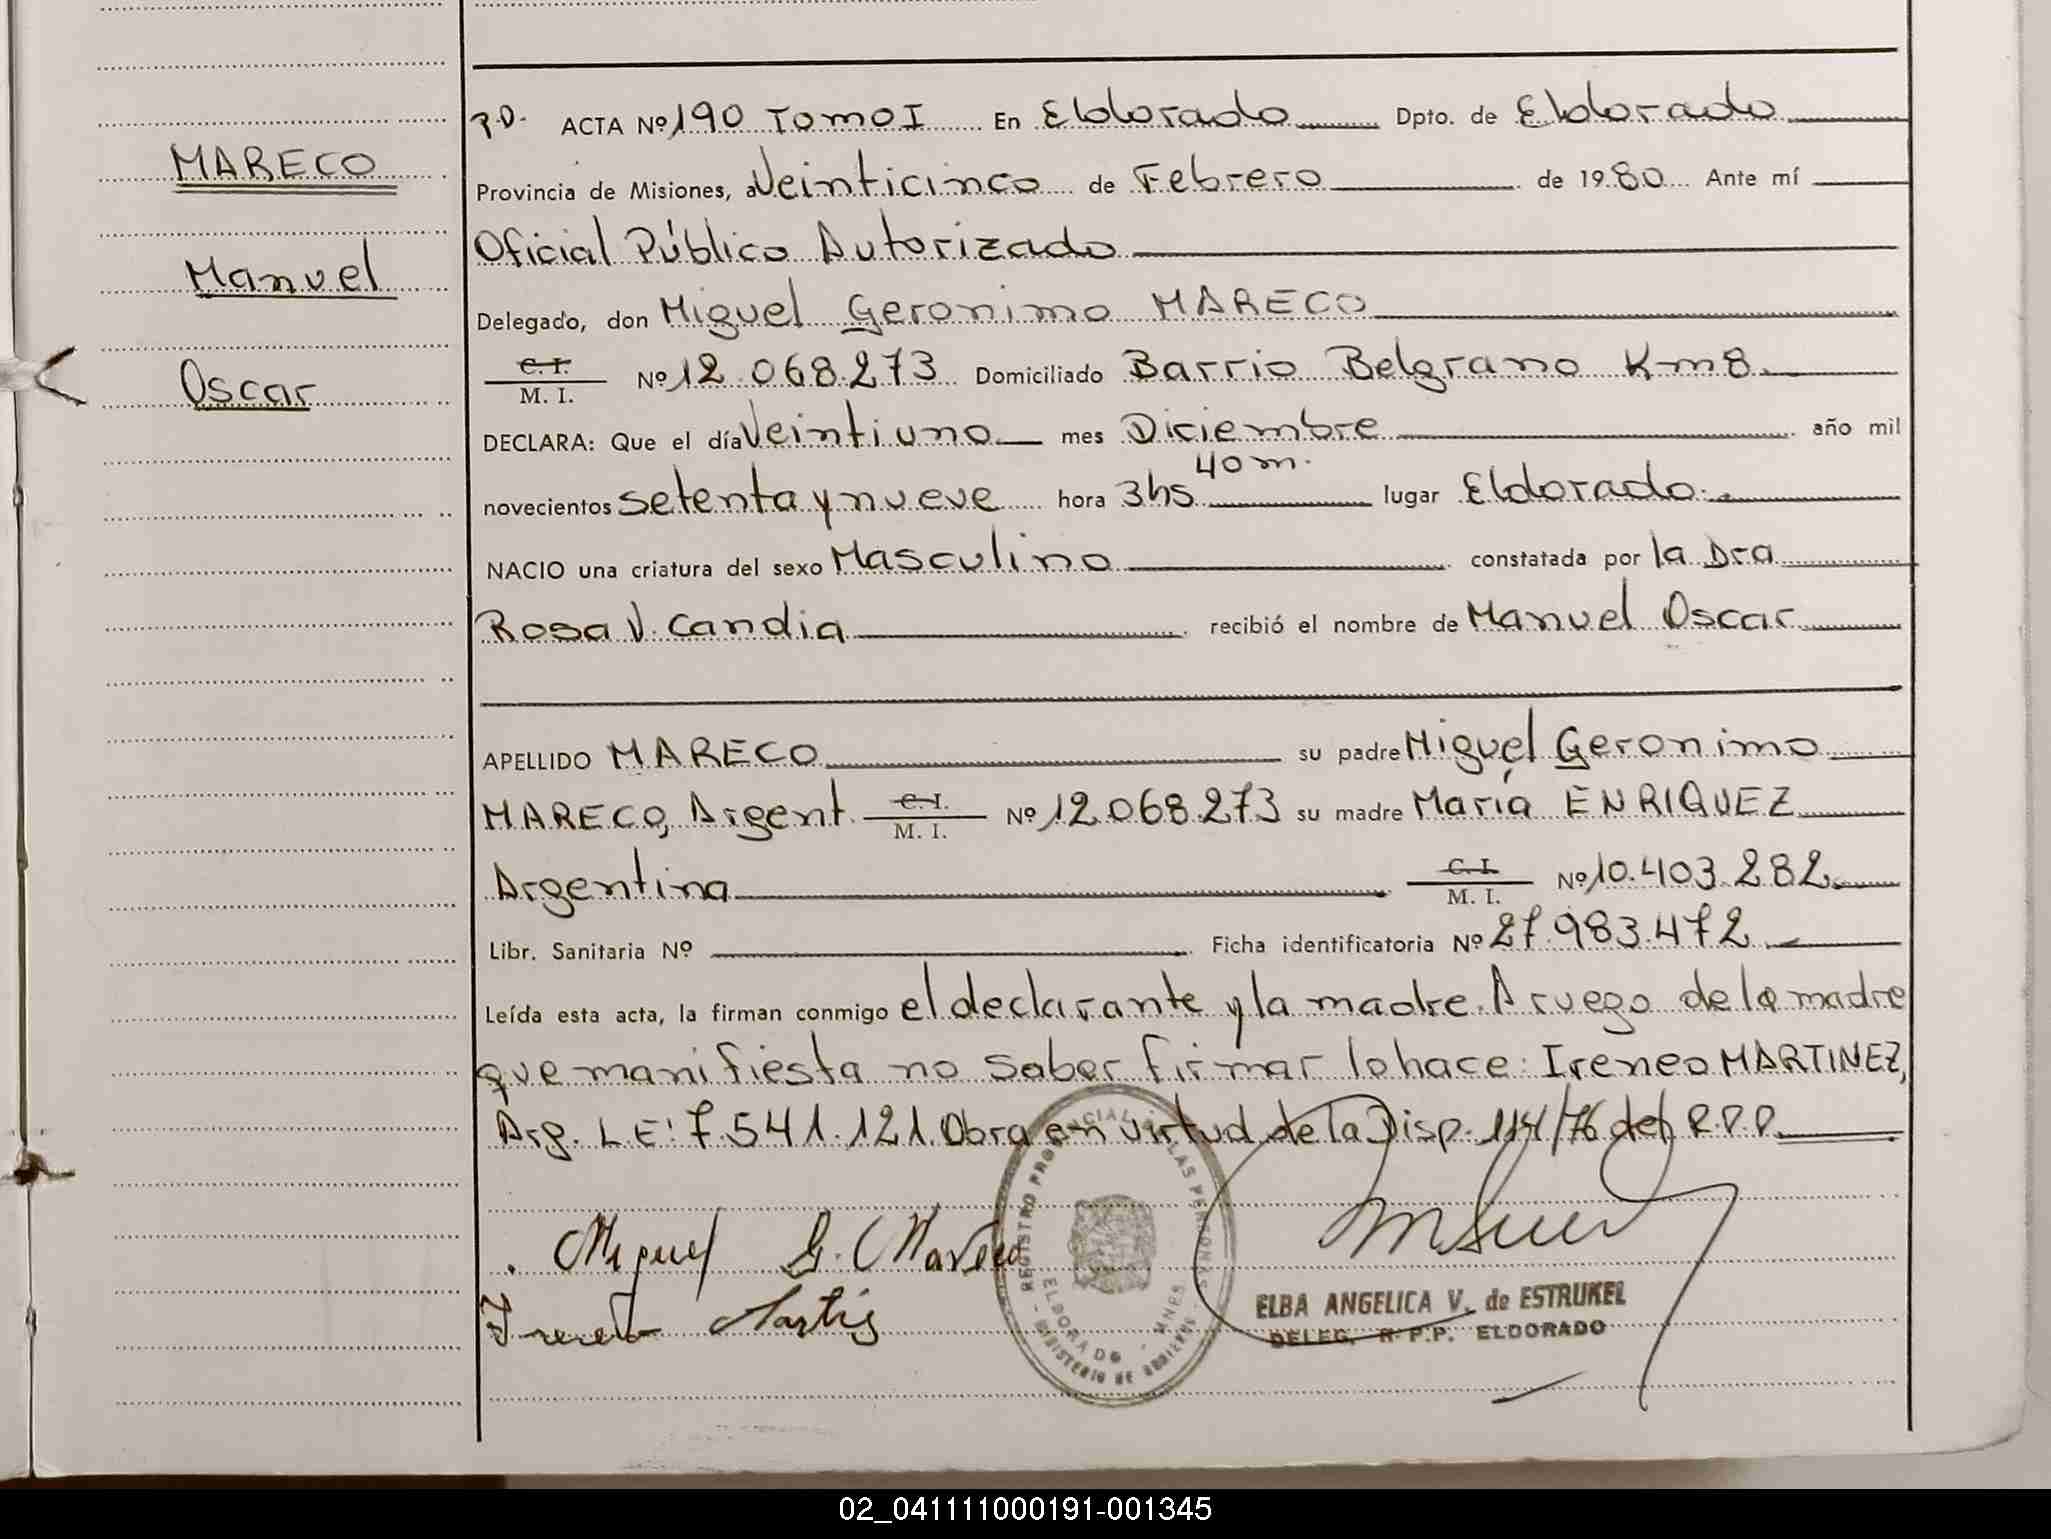 P.D. ACTA Nº 190 Tomo I En Eldorado Dpto. de Eldorado
MARECO
Provincia de Misiones, a Veinticinco de Febrero de 1980 Ante mí
Oficial Público Autorizado
Manuel
Delegado, don Miguel Geronimo MARECO
C. I.
M. I. Nº 12.068.273 Domiciliado Barrio Belgrano Km 8
Oscar
DECLARA: Que el día Veintiuno mes Diciembre año mil
novecientos setenta y nueve hora 3hs 40 m. lugar Eldorado.
NACIO una criatura del sexo Masculino constatada por la Dra
Rosa V. Candia recibió el nombre de Manuel Oscar
APELLIDO MARECO su padre Miguel Geronimo
MARECO, Argent. C. I. M. I. Nº 12.068.273 su madre María ENRIQUEZ
Argentina C. I. M. I. Nº 10.403.282
Libr. Sanitaria Nº Ficha identificatoria Nº 27.983.472
Leída esta acta, la firman conmigo el declarante y la madre. A ruego de la madre
que manifiesta no saber firmar lo hace: Ireneo MARTINEZ,
Arg. L E: 7.541.121. Obra en virtud de la Disp. 114/76 del R.P.P.
Miguel G. Mareco
REGISTRO PROVINCIAL DE LAS PERSONAS
ELDORADO - MNES
MINISTERIO DE GOBIERNO
Ireneo
ELBA ANGELICA V. de ESTRUKEL
DELEG. R.P.P. ELDORADO
02_041111000191-001345